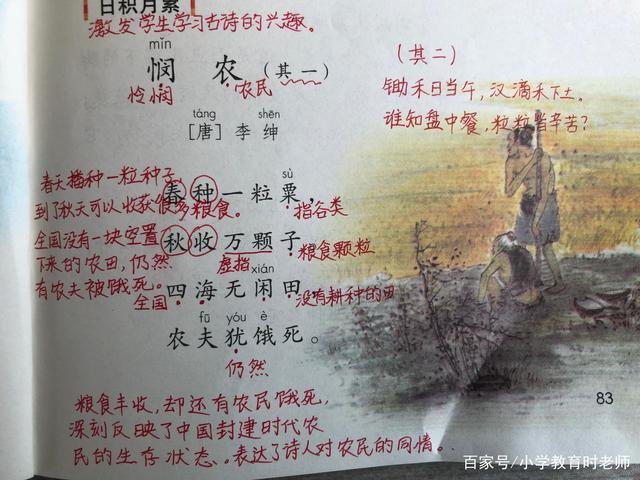 日积月累
激发学生学习古诗的兴趣。
mǐn
悯 农（其一）
怜悯
农民
táng shēn
[唐] 李 绅
（其二）
锄禾日当午，汗滴禾下土。
谁知盘中餐，粒粒皆辛苦？
春天播种一粒种子，
到了秋天可以收获很多粮食。
sù
春种一粒粟，
指谷类
秋收万颗子
虚指
粮食颗粒
全国没有一块空置
下来的农田，仍然
有农夫被饿死。
xián
四海无闲田，
全国
没有耕种的田
fū yóu è
农夫犹饿死。
仍然
粮食丰收，却还有农民饿死，
深刻反映了中国封建时代农
民的生存状态。表达了诗人对农民的同情。
83
百家号/小学教育时老师